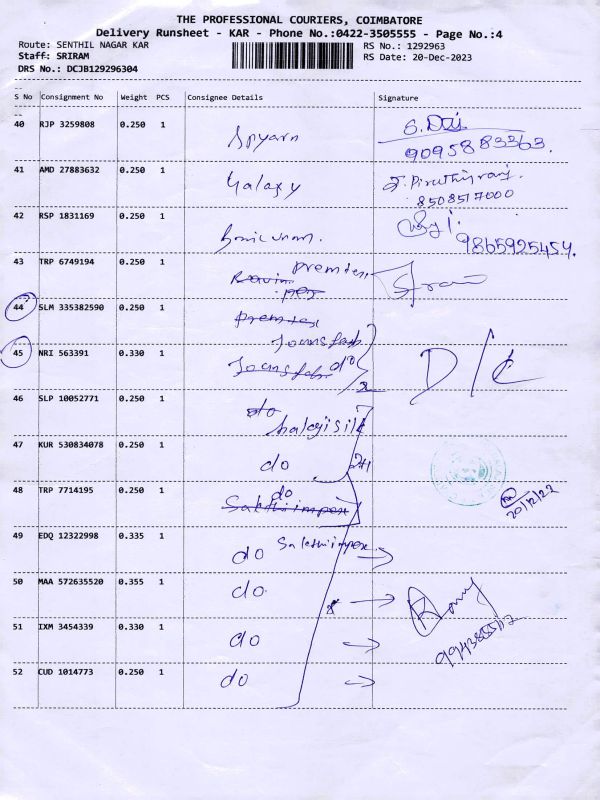 THE PROFESSIONAL COURIERS, COIMBATORE
Delivery Runsheet - KAR - Phone No.:0422-3505555 - Page No.:4
Route: SENTHIL NAGAR KAR RS No.: 1292963
Staff: SRIRAM RS Date: 20-Dec-2023
DRS No.: DCJB129296304
S No Consignment No Weight PCS Consignee Details Signature
40 RJP 3259808 0.250 1
9095883363.
41 AMD 27883632 0.250 1 Galaxy
8508517000
42 RSP 1831169 0.250 1
9865925454.
43 TRP 6749194 0.250 1 premtex
44 SLM 335382590 0.250 1 premtex
45 NRI 563391 0.330 1 do D/C
46 SLP 10052771 0.250 1 do
balajisilk
47 KUR 530834078 0.250 1 do
48 TRP 7714195 0.250 1 do
Sakthiimpex
20/12/22
49 EDQ 12322998 0.335 1 do Sakthiimpex
50 MAA 572635520 0.355 1 do
51 IXM 3454339 0.330 1 do
52 CUD 1014773 0.250 1 do